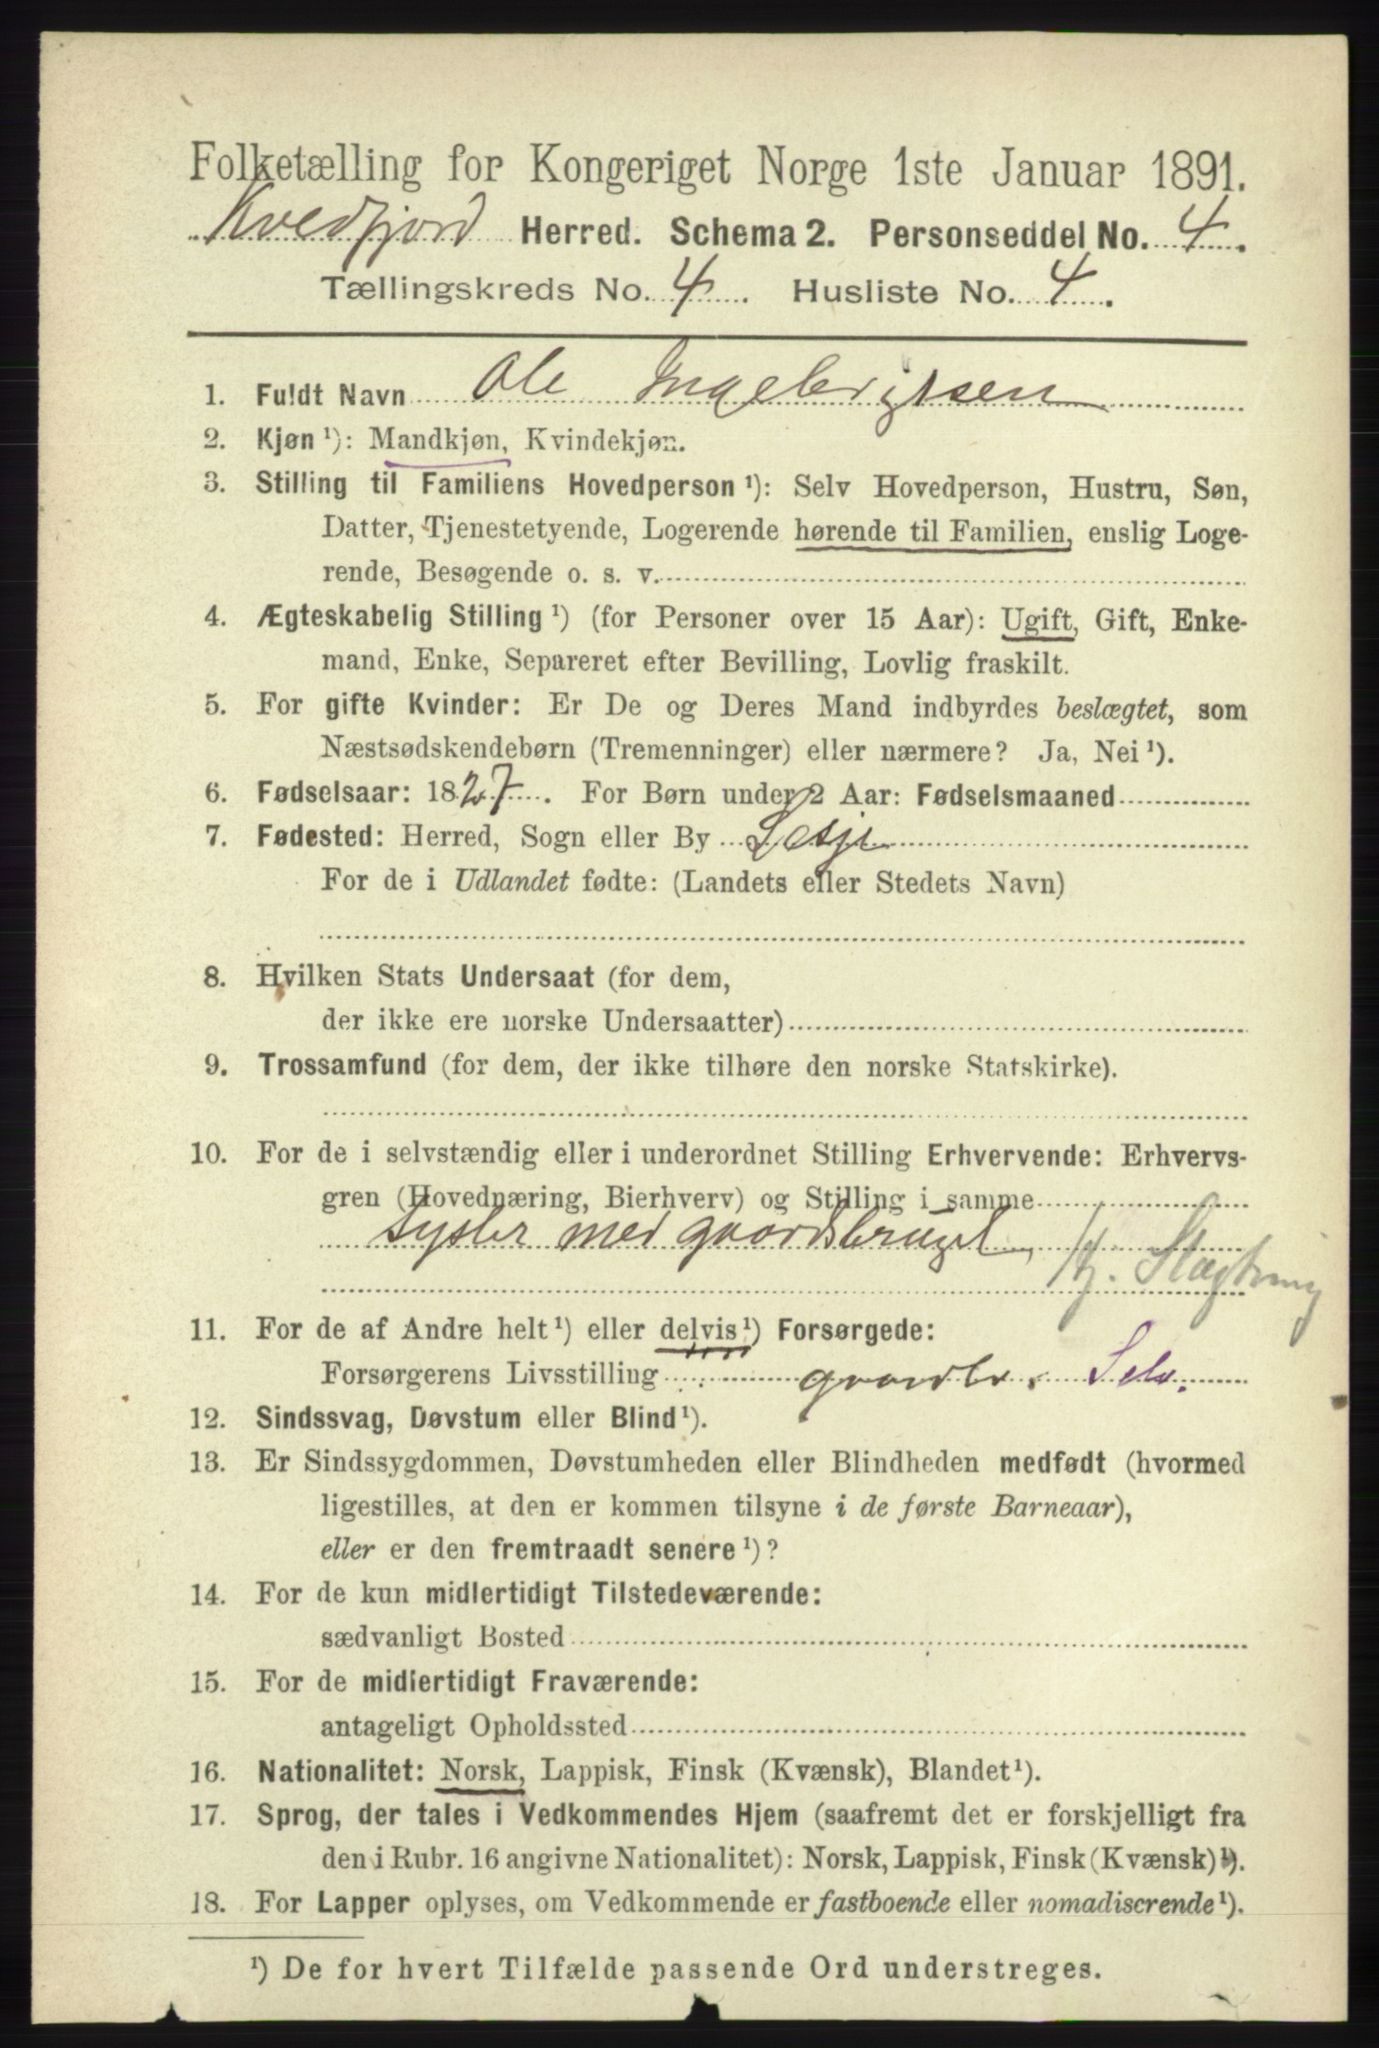 Folketælling for Kongeriget Norge 1ste Januar 1891.
Kvedfjord Herred. Schema 2. Personseddel No. 4.
Tællingskreds No. 4. Husliste No. 4.
1. Fuldt Navn Ole Ingebrigtsen
2. Kjøn ¹): Mandkjøn, Kvindekjøn.
3. Stilling til Familiens Hovedperson ¹): Selv Hovedperson, Hustru, Søn,
Datter, Tjenestetyende, Logerende hørende til Familien, enslig Loge-
rende, Besøgende o. s. v.
4. Ægteskabelig Stilling ¹) (for Personer over 15 Aar): Ugift, Gift, Enke-
mand, Enke, Separeret efter Bevilling, Lovlig fraskilt.
5. For gifte Kvinder: Er De og Deres Mand indbyrdes beslægtet, som
Næstsødskendebørn (Tremenninger) eller nærmere? Ja, Nei ¹).
6. Fødselsaar: 1827. For Børn under 2 Aar: Fødselsmaaned
7. Fødested: Herred, Sogn eller By Lesje
For de i Udlandet fødte: (Landets eller Stedets Navn)
8. Hvilken Stats Undersaat (for dem,
der ikke ere norske Undersaatter)
9. Trossamfund (for dem, der ikke tilhøre den norske Statskirke).
10. For de i selvstændig eller i underordnet Stilling Erhvervende: Erhvervs-
gren (Hovednæring, Bierhverv) og Stilling i samme
sysler med gaardsbruget
11. For de af Andre helt ¹) eller delvis ¹) Forsørgede:
Forsørgerens Livsstilling gaardbr. Selv.
12. Sindssvag, Døvstum eller Blind ¹).
13. Er Sindssygdommen, Døvstumheden eller Blindheden medfødt (hvormed
ligestilles, at den er kommen tilsyne i de første Barneaar),
eller er den fremtraadt senere ¹)?
14. For de kun midlertidigt Tilstedeværende:
sædvanligt Bosted
15. For de midlertidigt Fraværende:
antageligt Opholdssted
16. Nationalitet: Norsk, Lappisk, Finsk (Kvænsk), Blandet ¹).
17. Sprog, der tales i Vedkommendes Hjem (saafremt det er forskjelligt fra
den i Rubr. 16 angivne Nationalitet): Norsk, Lappisk, Finsk (Kvænsk) ¹).
18. For Lapper oplyses, om Vedkommende er fastboende eller nomadiserende ¹).
¹) De for hvert Tilfælde passende Ord understreges.